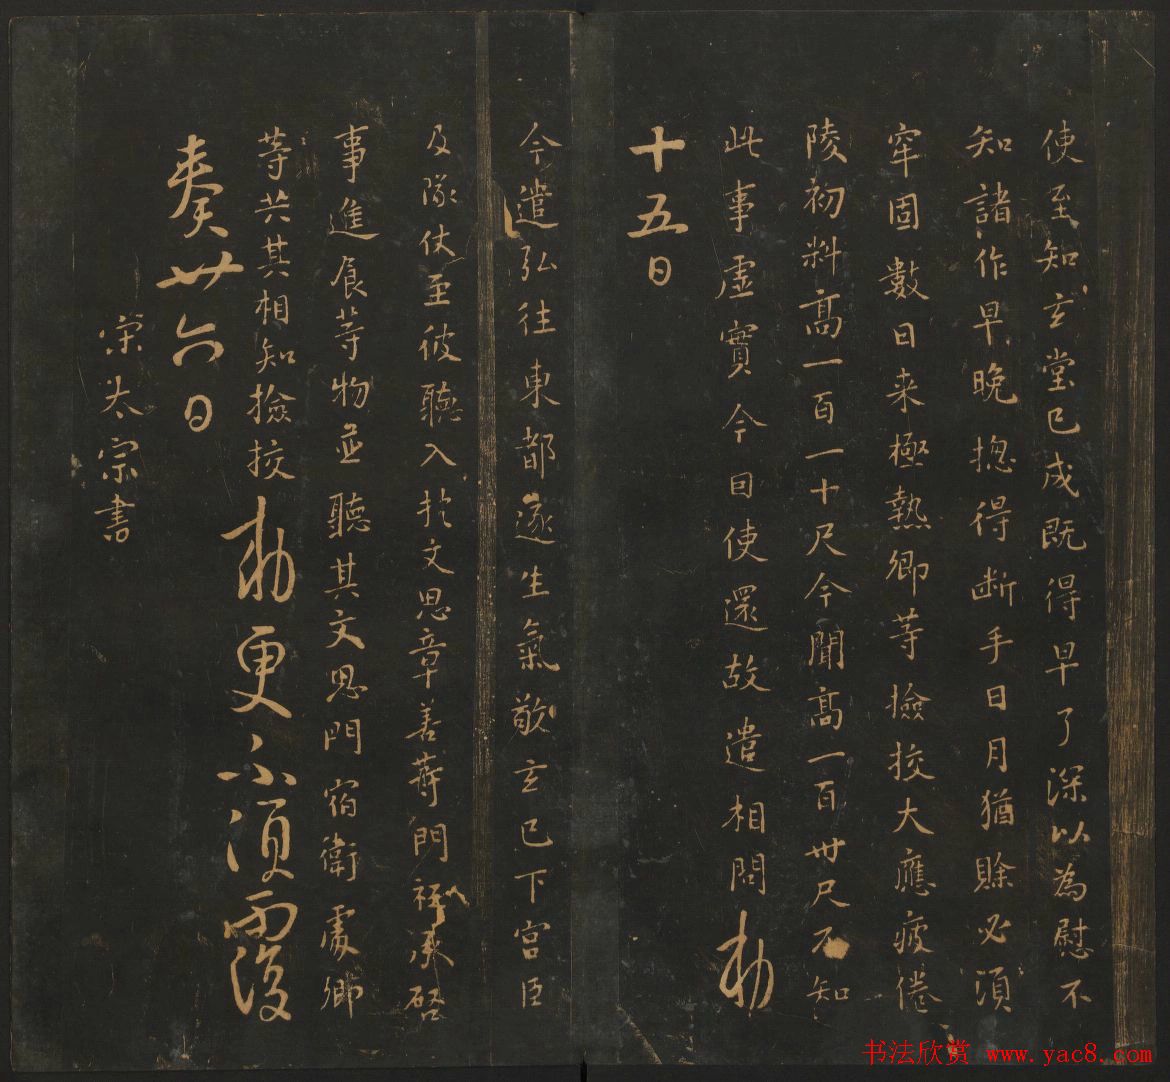 使至知玄堂已成既得早了深以為慰不
知諸作早晚揔得斷手日月猶賒必須
牢固數日来極熱卿等撿挍大應疲倦
陵初料高一百一十尺今聞高一百卅尺不知
此事虛實今日使還故遣相問勅
十五日
今遣弘往東都遂生氣敬玄已下宮臣
及隊仗至彼聽入於文思章善蕣門祗承啓
事進食等物並聽其文思門宿衛處卿
等共其相知撿挍勅更不須覆
奏廿六日
宋太宗書
书法欣赏 www.yac8.com